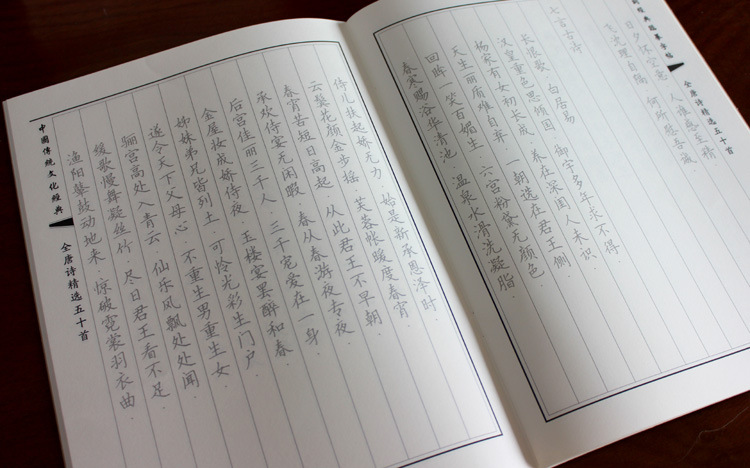 经典临摹字帖
日夕怀空意 人谁感至精
飞沉理自隔 何所慰吾诚
七言古诗
长恨歌 白居易
汉皇重色思倾国 御宇多年求不得
杨家有女初长成 养在深闺人未识
天生丽质难自弃 一朝选在君王侧
回眸一笑百媚生 六宫粉黛无颜色
春寒赐浴华清池 温泉水滑洗凝脂
侍儿扶起娇无力 始是新承恩泽时
云鬓花颜金步摇 芙蓉帐暖度春宵
春宵苦短日高起 从此君王不早朝
承欢侍宴无闲暇 春从春游夜专夜
后宫佳丽三千人 三千宠爱在一身
金屋妆成娇侍夜 玉楼宴罢醉和春
姊妹弟兄皆列土 可怜光彩生门户
遂令天下父母心 不重生男重生女
骊宫高处入青云 仙乐风飘处处闻
缓歌慢舞凝丝竹 尽日君王看不足
渔阳鼙鼓动地来 惊破霓裳羽衣曲
中國傳統文化經典 全唐诗精选五十首